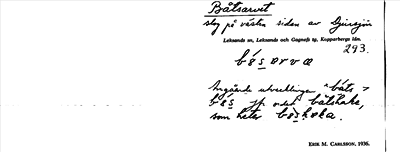 Båtsarvet
slog på västra sidan av Djursjön
Leksands sn, Leksands och Gagnefs tg, Kopparbergs län.
293.
Angående utvecklingen båts >
jfr ordet båtshake,
som heter
ERIK M. CARLSSON, 1936.